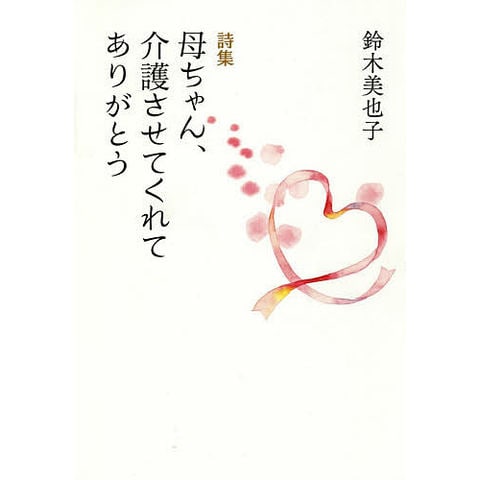 鈴木美也子
詩集
母ちゃん、
介護させてくれて
ありがとう